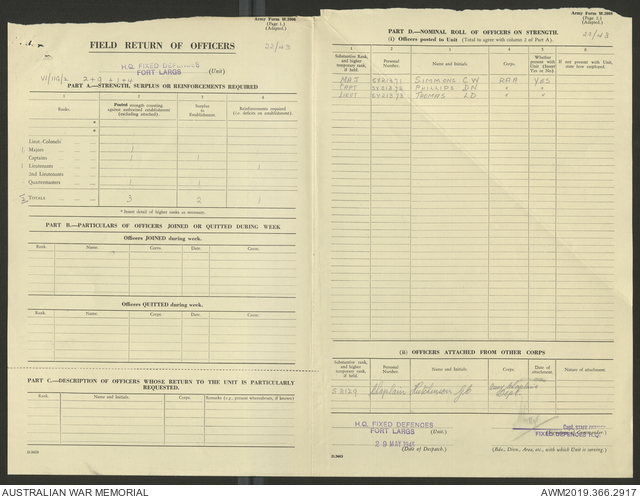 Army Form W.3008
(Page 1.)
(Adapted.)
FIELD RETURN OF OFFICERS
22/43
H.Q. FIXED DEFENCES
FORT LARGS
(Unit)
PART A.—STRENGTH, SURPLUS OR REINFORCEMENTS REQUIRED
1 2 3 4
Ranks. Posted strength counting against authorized establishment (excluding attached). Surplus to Establishment. Reinforcements required (i.e. deficits on establishment).
Lieut.-Colonels
Majors 1
Captains 1 1
Lieutenants 1
2nd Lieutenants
Quartermasters 1 1
TOTALS 3 2 1
* Insert detail of higher ranks as necessary.
PART B.—PARTICULARS OF OFFICERS JOINED OR QUITTED DURING WEEK
Officers JOINED during week.
Rank. Name. Corps. Date. Cause.
Officers QUITTED during week.
Rank. Name. Corps. Date. Cause.
PART C.—DESCRIPTION OF OFFICERS WHOSE RETURN TO THE UNIT IS PARTICULARLY REQUESTED.
Rank. Name and Initials. Corps. Remarks (e.g., present whereabouts, if known)
Army Form W.3008
(Page 2.)
(Adapted.)
22/43
PART D.—NOMINAL ROLL OF OFFICERS ON STRENGTH.
(i) Officers posted to Unit (Total to agree with column 2 of Part A).
1 2 3 4 5 6
Substantive Rank, and higher temporary rank, if held. Personal Number. Name and Initials. Corps. Whether present with Unit (Insert Yes or No). If not present with Unit, state how employed.
MAJ SIMMONS C W RAA YES
CAPT PHILLIPS D N " "
LIEUT THOMAS I D " "
(ii) OFFICERS ATTACHED FROM OTHER CORPS
Substantive rank, and higher temporary rank, if held. Personal Number. Name and Initials. Corps. Date of attachment. Nature of attachment.
H.Q. FIXED DEFENCES
FORT LARGS
(Unit.)
29 MAY 1943
(Date of Despatch.)
FIXED DEFENCES H.Q.
(Bde., Divn., Area, etc., with which Unit is serving.)
AUSTRALIAN WAR MEMORIAL
AWM2019.366.2917